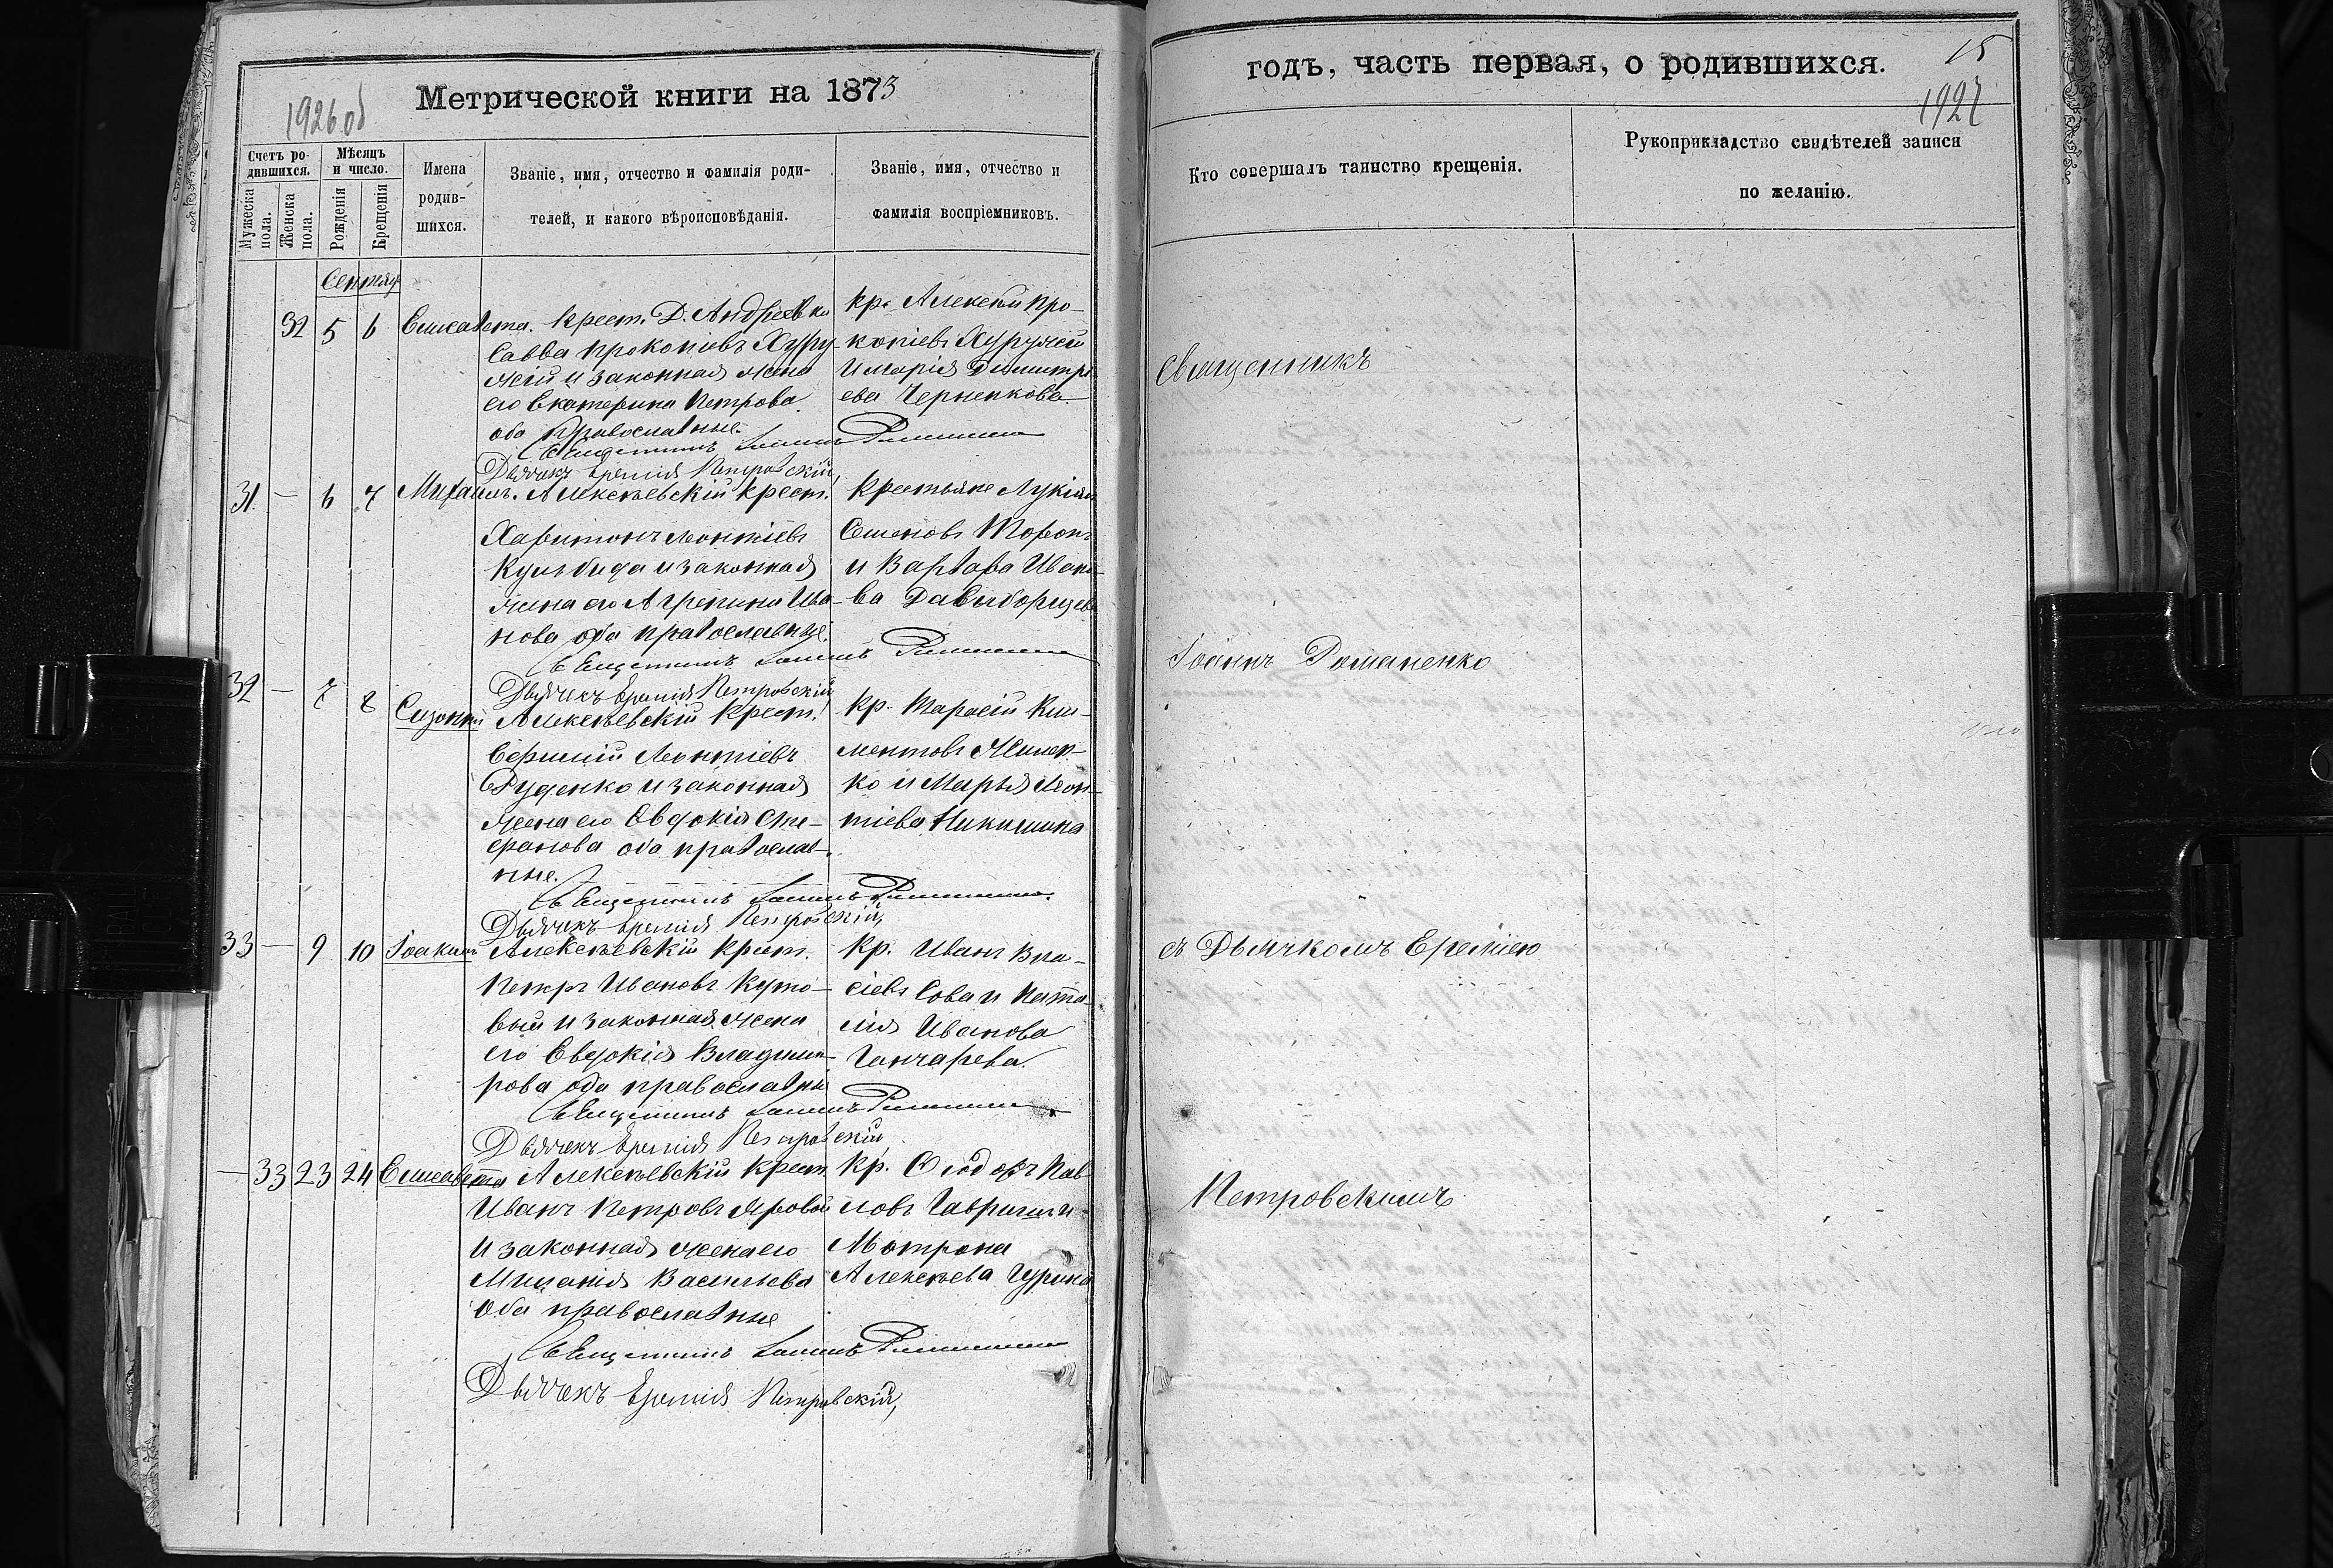 Метрической книги на 1873
1926 об
Счетъ ро-
дившихся.
Мѣсяцъ
и число.
Мужеска
пола.
Женска
пола.
Рожденія
Крещенія
Имена
родив-
шихся.
Званіе, имя, отчество и фамилія роди-
телей, и какого вѣроисповѣданія.
Званіе, имя, отчество и
фамилія воспріемниковъ.
Сентяб
32 5 6 Елисавета. Крест. Д. Андреевки
Савва Прокопіевъ Хуру-
жій и законная жена
его Екатерина Петрова
оба православные.
Священникъ Іоаннъ
Дьячекъ Еремія Петровскій,
кр. Алексѣй Про-
копіевъ Хуружій
и Марія Димитрі
ева Черненкова
31 — 6 7 Михаилъ. Алексѣевскій крест.
Харитонъ Леонтіевъ
Кульбида и законная
жена его Агрепина Ива-
нова оба православные.
Священникъ Іоаннъ
Дьячекъ Еремія Петровскій,
Крестьяне Лукіянъ
Семеновъ
и Варвара Ивано-
ва
32 — 7 8 Созонтій Алексѣевскій крест.
Леонтіевъ
Руденко и законная
жена его Евдокія Сте-
фанова оба православ-
ные.
Священникъ Іоаннъ
Дьячекъ Еремія Петровскій,
кр. Тарасій Кли-
ментовъ
ко и Марья Леон-
тіева Никишина
33 — 9 10 Іоакимъ Алексѣевскій крест.
Петръ Ивановъ Куто-
вый и законная жена
его Евдокія Владими-
рова оба православны
Священникъ Іоаннъ
Дьячекъ Еремія Петровскій,
кр. Иванъ Вла-
сіевъ Сова и Ната-
лія Иванова
Ганчарева.
— 33 23 24 Елисавета Алексѣевскій крест.
Иванъ Петровъ Яровой
и законная жена его
Миланія Васильева
оба православные
Священникъ Іоаннъ
Дьячекъ Еремія Петровскій,
Кр. Ѳеодоръ Пав
ловъ и
Мотрона
Алексѣева Гурина
годъ, часть первая, о родившихся.
15
1927
Кто совершалъ таинство крещенія.
Рукоприкладство свидѣтелей записи
по желанію.
Священникъ
Іоаннъ Романенко
съ Дьячкомъ Ереміею
Петровскимъ